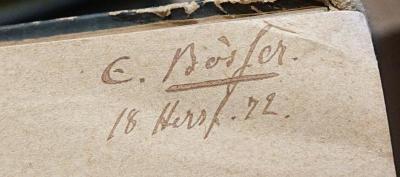 C. Bösser.
18 Herrf. 72.